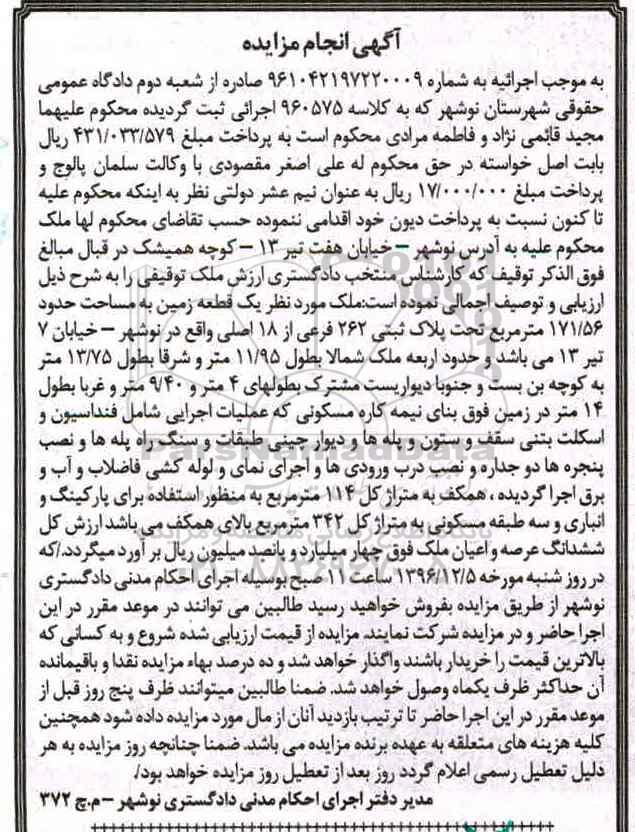 آگهی انجام مزایده
به موجب اجرائیه به شماره ۹۶۱۰۴۲۱۹۷۲۲۰۰۰۹ صادره از شعبه دوم دادگاه عمومی
حقوقی شهرستان نوشهر که به کلاسه ۹۶۰۵۷۵ اجرائی ثبت گردیده محکوم علیهما
مجید قائمی نژاد و فاطمه مرادی محکوم است به پرداخت مبلغ ۴۳۱/۰۳۳/۵۷۹ ریال
بابت اصل خواسته در حق محکوم له علی اصغر مقصودی با وکالت سلمان پالوج و
پرداخت مبلغ ۱۷/۰۰۰/۰۰۰ ریال به عنوان نیم عشر دولتی نظر به اینکه محکوم علیه
تا کنون نسبت به پرداخت دیون خود اقدامی ننموده حسب تقاضای محکوم لها ملک
محکوم علیه به آدرس نوشهر – خیابان هفت تیر ۱۳ – کوچه همیشک در قبال مبالغ
فوق الذکر توقیف که کارشناس منتخب دادگستری ارزش ملک توقیفی را به شرح ذیل
ارزیابی و توصیف اجمالی نموده است:ملک مورد نظر یک قطعه زمین به مساحت حدود
۱۷۱/۵۶ مترمربع تحت پلاک ثبتی ۲۶۲ فرعی از ۱۸ اصلی واقع در نوشهر – خیابان ۷
تیر ۱۳ می باشد و حدود اربعه ملک شمالا بطول ۱۱/۹۵ متر و شرقا بطول ۱۳/۷۵ متر
به کوچه بن بست و جنوبا دیواریست مشترک بطولهای ۴ متر و ۹/۴۰ متر و غربا بطول
۱۴ متر در زمین فوق بنای نیمه کاره مسکونی که عملیات اجرایی شامل فنداسیون و
اسکلت بتنی سقف و ستون و پله ها و دیوار چینی طبقات و سنگ راه پله ها و نصب
پنجره ها دو جداره و نصب درب ورودی ها و اجرای نمای و لوله کشی فاضلاب و آب و
برق اجرا گردیده ، همکف به متراژ کل ۱۱۴ مترمربع به منظور استفاده برای پارکینگ و
انباری و سه طبقه مسکونی به متراژ کل ۳۴۲ مترمربع بالای همکف می باشد ارزش کل
ششدانگ عرصه و اعیان ملک فوق چهار میلیارد و پانصد میلیون ریال بر آورد میگردد./که
در روز شنبه مورخه ۱۳۹۶/۱۲/۵ ساعت ۱۱ صبح بوسیله اجرای احکام مدنی دادگستری
نوشهر از طریق مزایده بفروش خواهید رسید طالبین می توانند در موعد مقرر در این
اجرا حاضر و در مزایده شرکت نمایند. مزایده از قیمت ارزیابی شده شروع و به کسانی که
بالاترین قیمت را خریدار باشند واگذار خواهد شد و ده درصد بهاء مزایده نقدا و باقیمانده
آن حداکثر ظرف یکماه وصول خواهد شد. ضمنا طالبین میتوانند ظرف پنج روز قبل از
موعد مقرر در این اجرا حاضر تا ترتیب بازدید آنان از مال مورد مزایده داده شود همچنین
کلیه هزینه های متعلقه به عهده برنده مزایده می باشد. ضمنا چنانچه روز مزایده به هر
دلیل تعطیل رسمی اعلام گردد روز بعد از تعطیل روز مزایده خواهد بود./
مدیر دفتر اجرای احکام مدنی دادگستری نوشهر –م.چ ۳۷۲
ParsNamadData